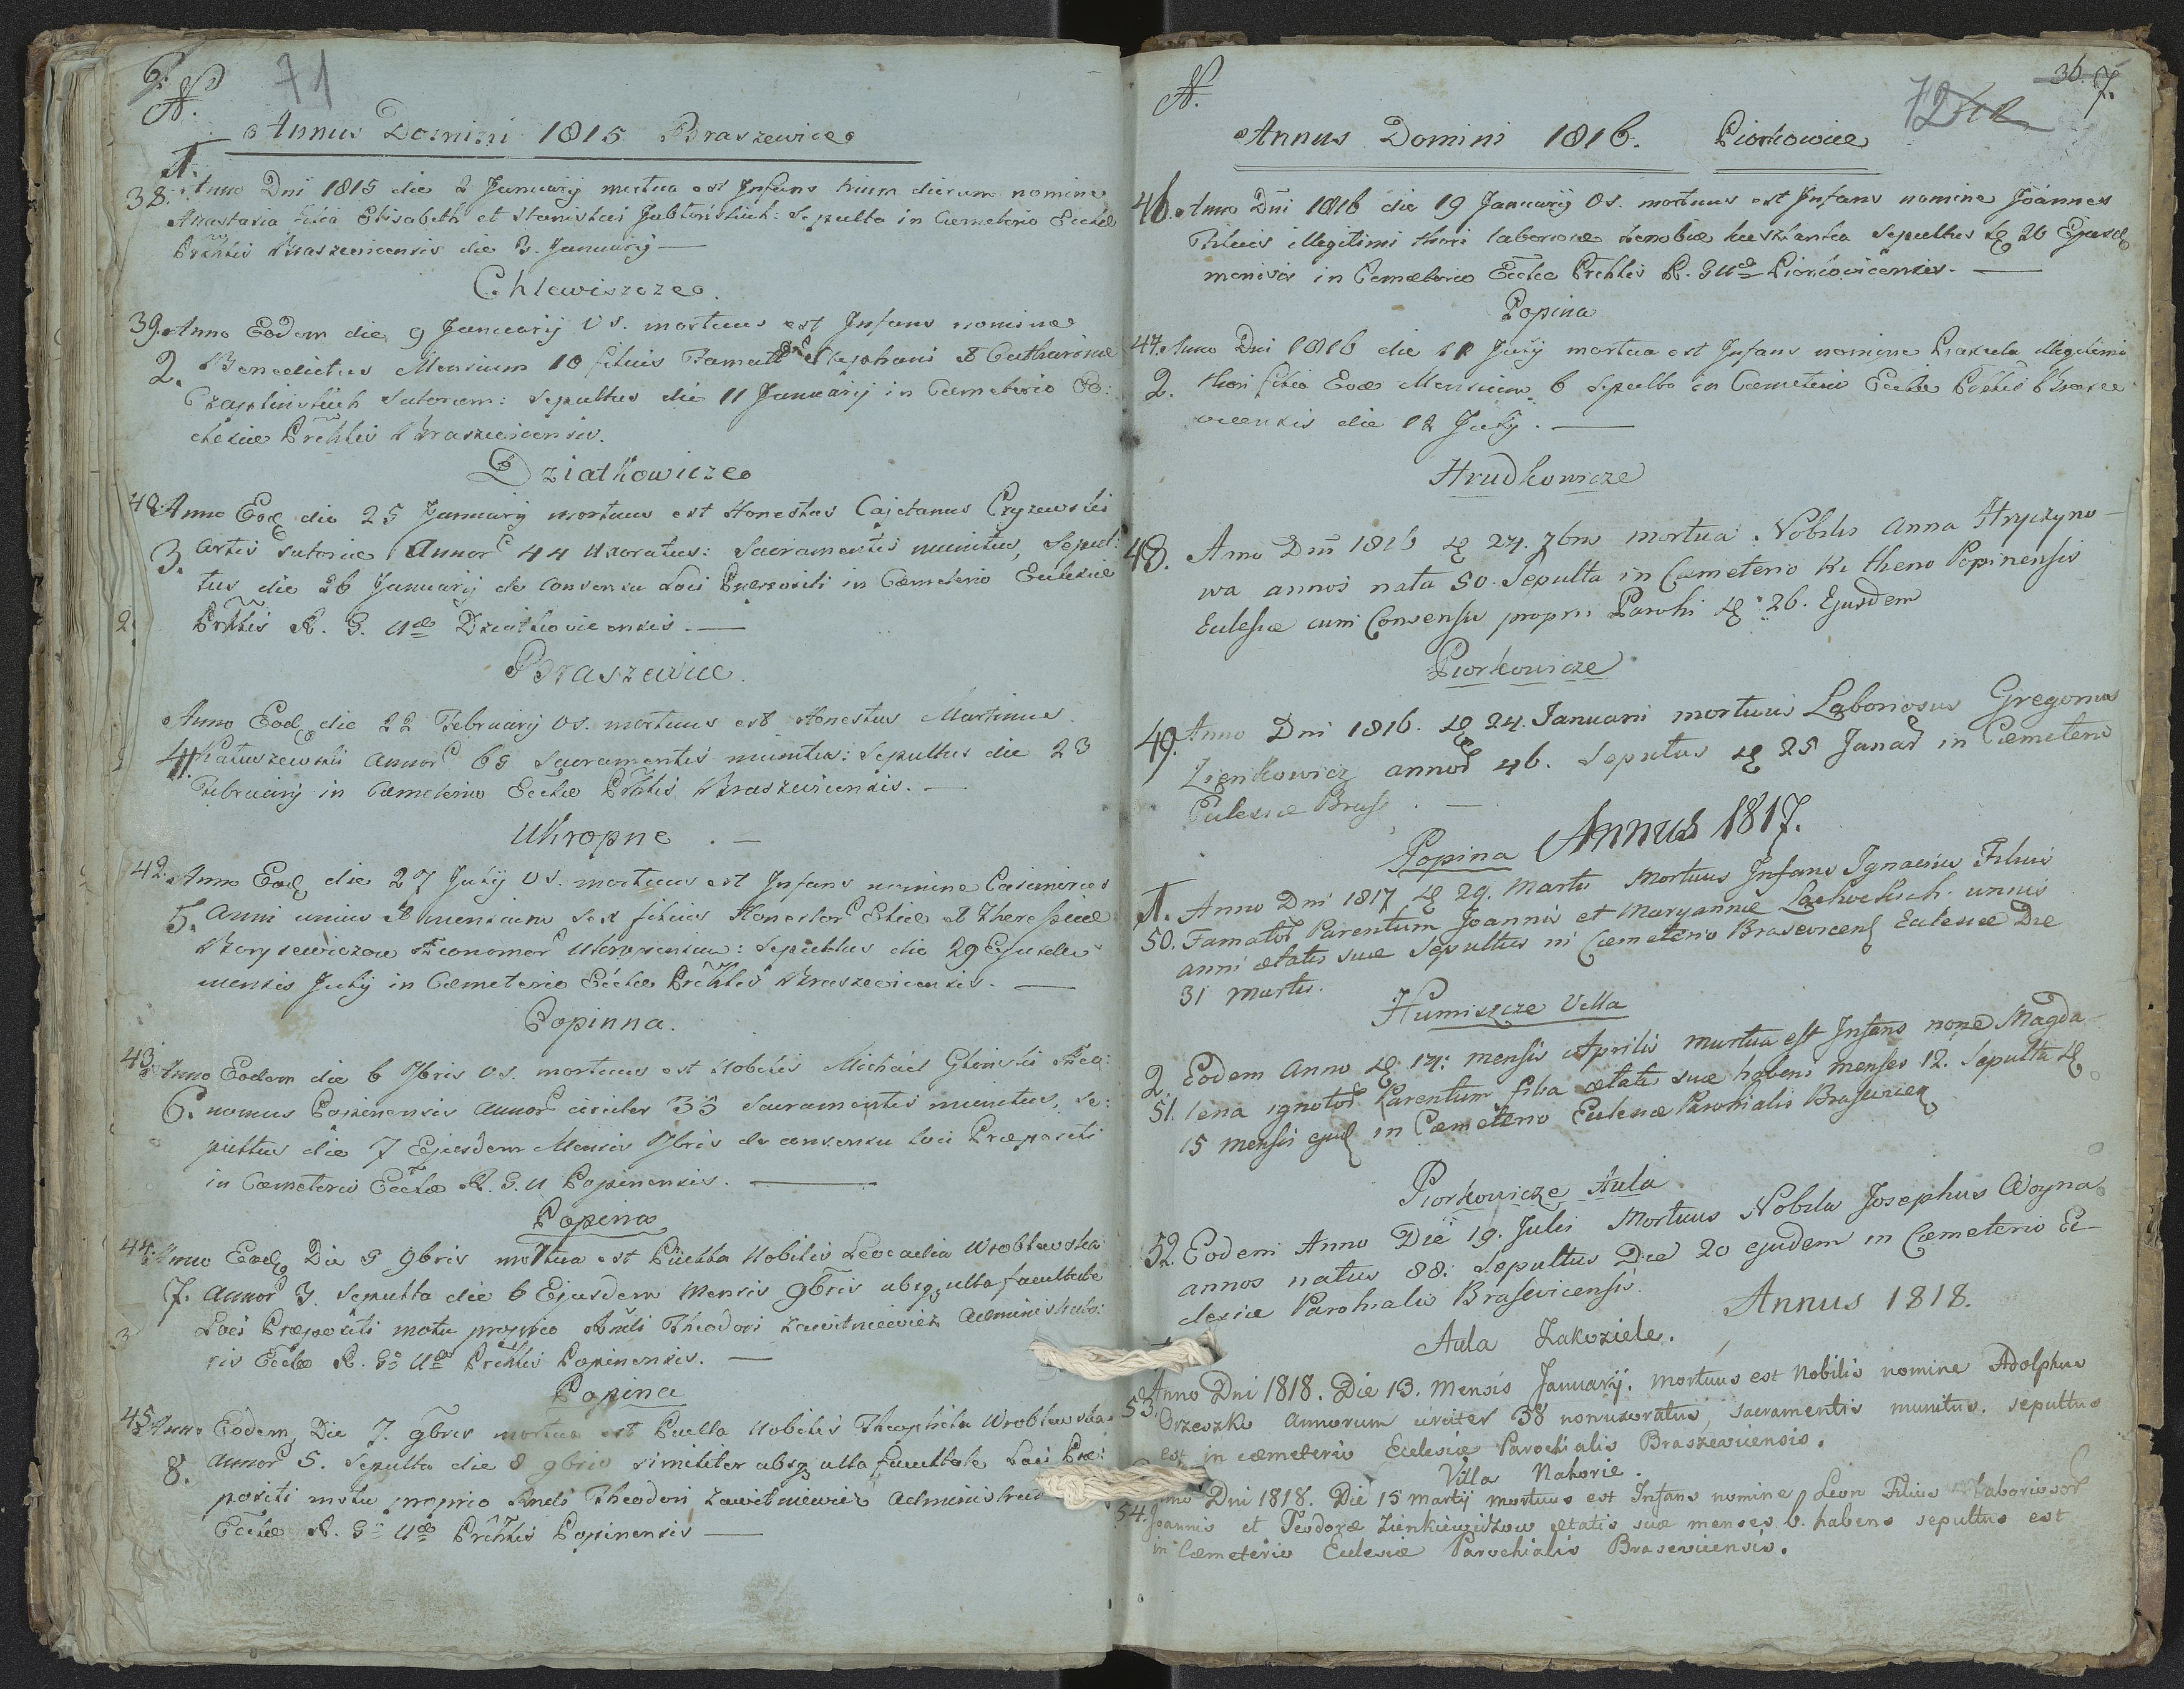 6.
N. 71
Annus Domini 1815 Braszewice
1.
38. Anno Dni 1815 die 2 Januarij mortua est Infans trium dierum nomine
Anastasia filia Elisabeth et Stanislai Jabłońskich: Sepulta in Cæmeterio Ecclæ
Prchlis Braszevicensis die 3. Januarij —
Chlewiszcze
39. Anno Eodem die 9 Januarij V S. mortuus est Infans nomine
2. Benedictus Mensium 10 filius Stephani & Catharinæ
Czaplinskich Sutorum: Sepultus die 11 Januarij in Cæmeterio Ec:
clesiæ Prchlis Braszevicensis.
Dziatkowicze
40. Anno Eod die 25 Januarij mortuus est Honestus Cajetanus Cryzewski
3. Artis Sutoriæ Annor 44 Uxoratus: Sacramentis munitus, Sepul:
tus die 26 Januarij de Consensu Loci Præpositi in Cæmeterio Ecclesiæ
2. Prchlis R. G. Uæ Dziatkovicensis. —
Braszewice.
Anno Eod die 22 Februarij V S. mortuus est Honestus Martinus
4. Ratuszewski Annor 65 Sacramentis munitus: Sepultus die 23
Februarij in Cæmeterio Ecclæ Prchlis Braszevicensis. —
Ukropne . —
42. Anno Eod die 27 Julij V S. mortuus est Infans nomine Casimirus
5. Anni unius & mensium sex filius Honestor Eliæ & Theresiæ
Borysewiczow Æconomor Ukropnensium: Sepultus die 29 Ejusdem
mensis Julij in Cæmeterio Ecclæ Prchlis Braszevicensis. —
Popinna.
43. Anno Eodem die 6 7bris V S. mortuus est Nobilis Michael Glinski Æco:
6. nomus Popinensis Annor circiter 35 Sacramentis munitus, Se:
pultus die 7 Ejusdem Mensis 7bris de consensu Loci Præpositi
in Cæmeterio Ecclæ R. G. U Popinensis. —
Popina
44. Anno Eod Die 5 9bris mortua est Puella Nobilis Leocadia Wroblewska
7. Annor 3. Sepulta die 6 Ejusdem Mensis 9bris absq ulla facultate
3 Loci Præpositi motu proprio Andi Theodori Zawitniewicz Administrato:
ris Ecclæ R. G. Uæ Prchlis Popinensis. —
Popina
45. Anno Eodem Die 7. 9bris mortua est Puella Nobilis Theophila Wroblewska
8. Annor 5. Sepulta die 8 9bris similiter absq ulla facultate Loci Præ:
positi motu proprio Andi Theodori Zawitniewicz Administratoris
Ecclæ R. G. Uæ Prchlis Popinensis —
N. 72 36. 7.
Annus Domini 1816. Piorkowicze
46. Anno Dni 1816 die 19 Januarij V S. mortuus est Infans nomine Joannes
Filius illegitimi thori laboriosæ Zenobiæ Sepultus d 20 Ejusd
mensis in Cæmeterio Ecclæ Prchlis R. G Uæ Piorkovicensis. —
Popina
47. Anno Dni 1816 die 11 Julij mortua est Infans nomine Praxeda illegitimi
2. thori filia Evæ Mensium 6 Sepulta in Cæmeterio Ecclæ Prchlis Brasze
vicensis die 12 Julij. —
Hrudkowicze
48. Anno Dni 1816 d 24. 7bris mortua Nobilis Anna Hryczyno-
wa annos nata 50. Sepulta in Cæmeterio Rutheno Popinensis
Eclesiæ cum Consensu proprii Parohi d 26. Ejusdem
Piorkowicze
49. Anno Dni 1816. d 24. Januarii mortuus Laboriosus Gregorius
Zienkowicz annor 46. Sepultus d 25 Januar in Cæmeterio
Eclesiæ Bras . —
Popina Annus 1817.
1. Anno Dni 1817 d 29. Martii Mortuus Infans Ignacius Filius
50. Famator Parentum Joannis et Maryannæ unnis
anni ætatis suæ Sepultus in Cæmeterio Brasevicens Eclesiæ Die
31 Martii.
Humiszcze Villa
2. Eodem Anno d 14: mensis Aprilis murtua est Infans none Magda
51. lena ignotor Parentum filia ætatis suæ habens menses 12. Sepulta d
15 mensis ejusd in Cæmeterio Eclesiæ Parohialis Brasevicen
Piorkowicze Aula
52. Eodem Anno Die 19. Julii Mortuus Nobilis Josephus Woyna
annos natus 88: Sepultus Die 20 ejusdem in Cæmeterio Ec
clesiæ Parohialis Brasevicensis.
Annus 1818.
Aula Zakoziele.
53. Anno Dni 1818. Die 13. Mensis Januarij. mortuus est Nobilis nomine Adolphus
Orzeszko Annorum circiter 38 nonuxoratus, sacramentis munitus. sepultus
est in cæmeterio Eclesiæ Parochialis Braszewicensis.
Villa Nahorie.
54. Anno Dni 1818. Die 15 Martij mortuus est Infans nomine Leon Filius Laboriosor
Joannis et Teodoræ Zienkiewiczow ætatis suæ menses 6. habens sepultus est
in Cæmeterio Eclesiæ Parochialis Brasevicensis.